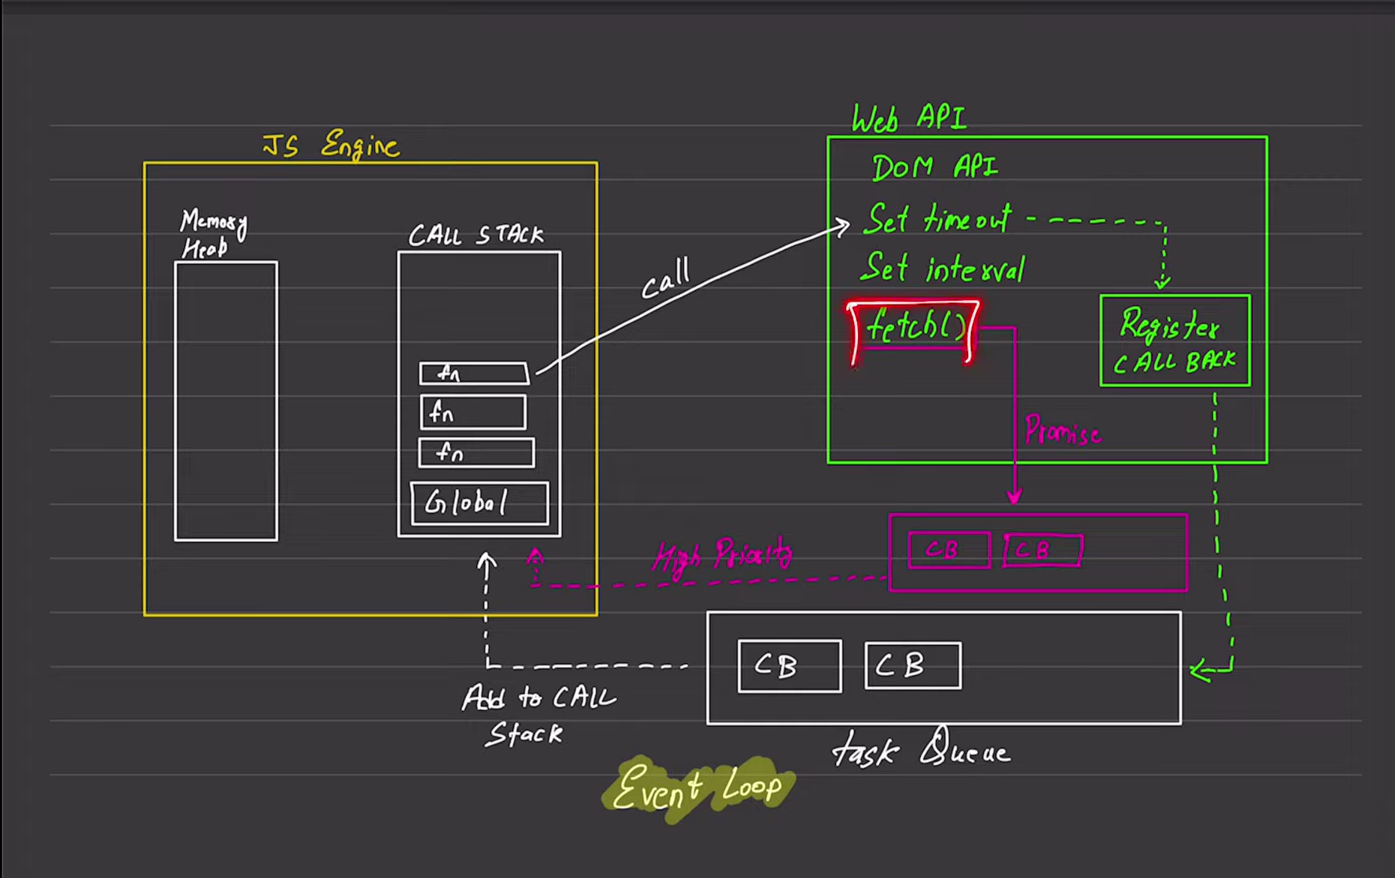 JS Engine
Memory
Heap
CALL STACK
fn
fn
fn
Global
call
Web API
DOM API
Set timeout
Set interval
fetch()
Register
CALL BACK
Promise
CB CB
High Priority
CB CB
Add to CALL
Stack
task Queue
Event Loop